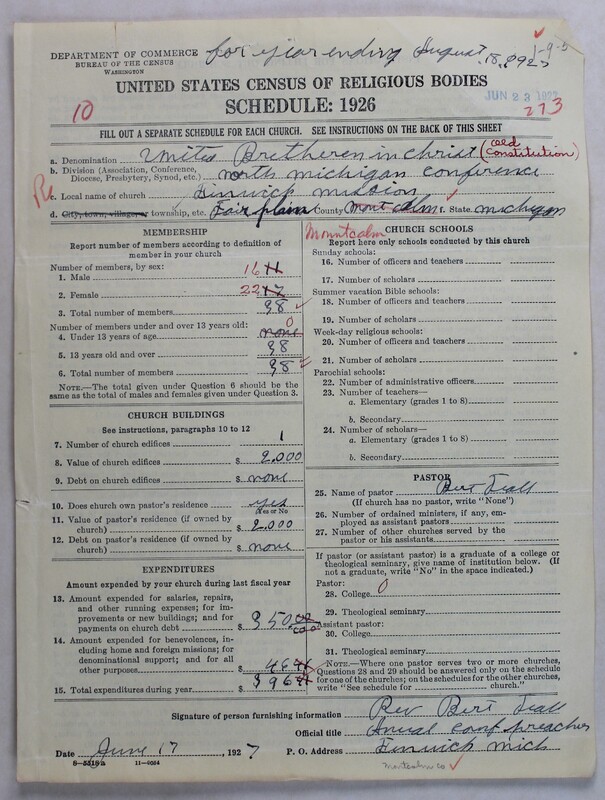 DEPARTMENT OF COMMERCE for year ending August
BUREAU OF THE CENSUS
WASHINGTON
1-9-5
UNITED STATES CENSUS OF RELIGIOUS BODIES
SCHEDULE: 1926
JUN 23
10
273
FILL OUT A SEPARATE SCHEDULE FOR EACH CHURCH. SEE INSTRUCTIONS ON THE BACK OF THIS SHEET
a. Denomination Unites Bretheren in Christ (Old Constitution)
b. Division (Association, Conference, Diocese, Presbytery, Synod, etc.) north michigan conference
c. Local name of church Finwick mission
d. City, town, village or township, etc. Fair plain County Mont calm f. State michigan
Mountcalm
MEMBERSHIP
Report number of members according to definition of
member in your church
Number of members, by sex:
1. Male 16
2. Female 22
3. Total number of members 38
Number of members under and over 13 years old:
4. Under 13 years of age none 0
5. 13 years old and over 38
6. Total number of members 38
NOTE.—The total given under Question 6 should be
the same as the total of males and females given under Question 3.
CHURCH BUILDINGS
See instructions, paragraphs 10 to 12
7. Number of church edifices 1
8. Value of church edifices $ 2,000
9. Debt on church edifices $ none
10. Does church own pastor's residence yes
(Yes or No)
11. Value of pastor's residence (if owned by
church) $ 2,000
12. Debt on pastor's residence (if owned by
church) $ none
EXPENDITURES
Amount expended by your church during last fiscal year
13. Amount expended for salaries, repairs,
and other running expenses; for im-
provements or new buildings; and for
payments on church debt $
14. Amount expended for benevolences, in-
cluding home and foreign missions; for
denominational support; and for all
other purposes
15. Total expenditures during year $
CHURCH SCHOOLS
Report here only schools conducted by this church
Sunday schools:
16. Number of officers and teachers
17. Number of scholars
Summer vacation Bible schools:
18. Number of officers and teachers
19. Number of scholars
Week-day religious schools:
20. Number of officers and teachers
21. Number of scholars
Parochial schools:
22. Number of administrative officers
23. Number of teachers—
a. Elementary (grades 1 to 8)
b. Secondary
24. Number of scholars—
a. Elementary (grades 1 to 8)
b. Secondary
PASTOR
25. Name of pastor Bert
(If church has no pastor, write "None")
26. Number of ordained ministers, if any, em-
ployed as assistant pastors
27. Number of other churches served by the
pastor or his assistants
If pastor (or assistant pastor) is a graduate of a college or
theological seminary, give name of institution below. (If
not a graduate, write "No" in the space indicated.)
Pastor:
28. College 0
29. Theological seminary
Assistant pastor:
30. College
31. Theological seminary
NOTE.—Where one pastor serves two or more churches,
Questions 28 and 29 should be answered only on the schedule
for one of the churches; on the schedules for the other churches,
write "See schedule for church."
Signature of person furnishing information Rev Bert
Official title Anual conf preacher
Date June 17, 1927 P. O. Address Finwick Mich
8-5518a 11-9064
Montcalm co